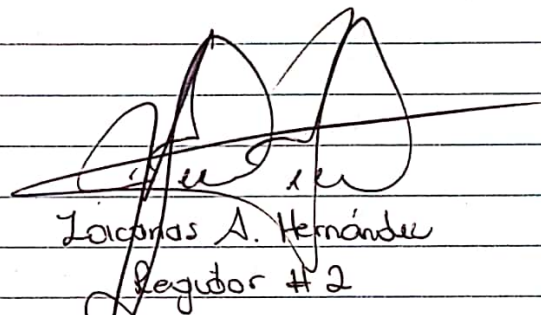 Zacarías A. Hernández
Regidor # 2